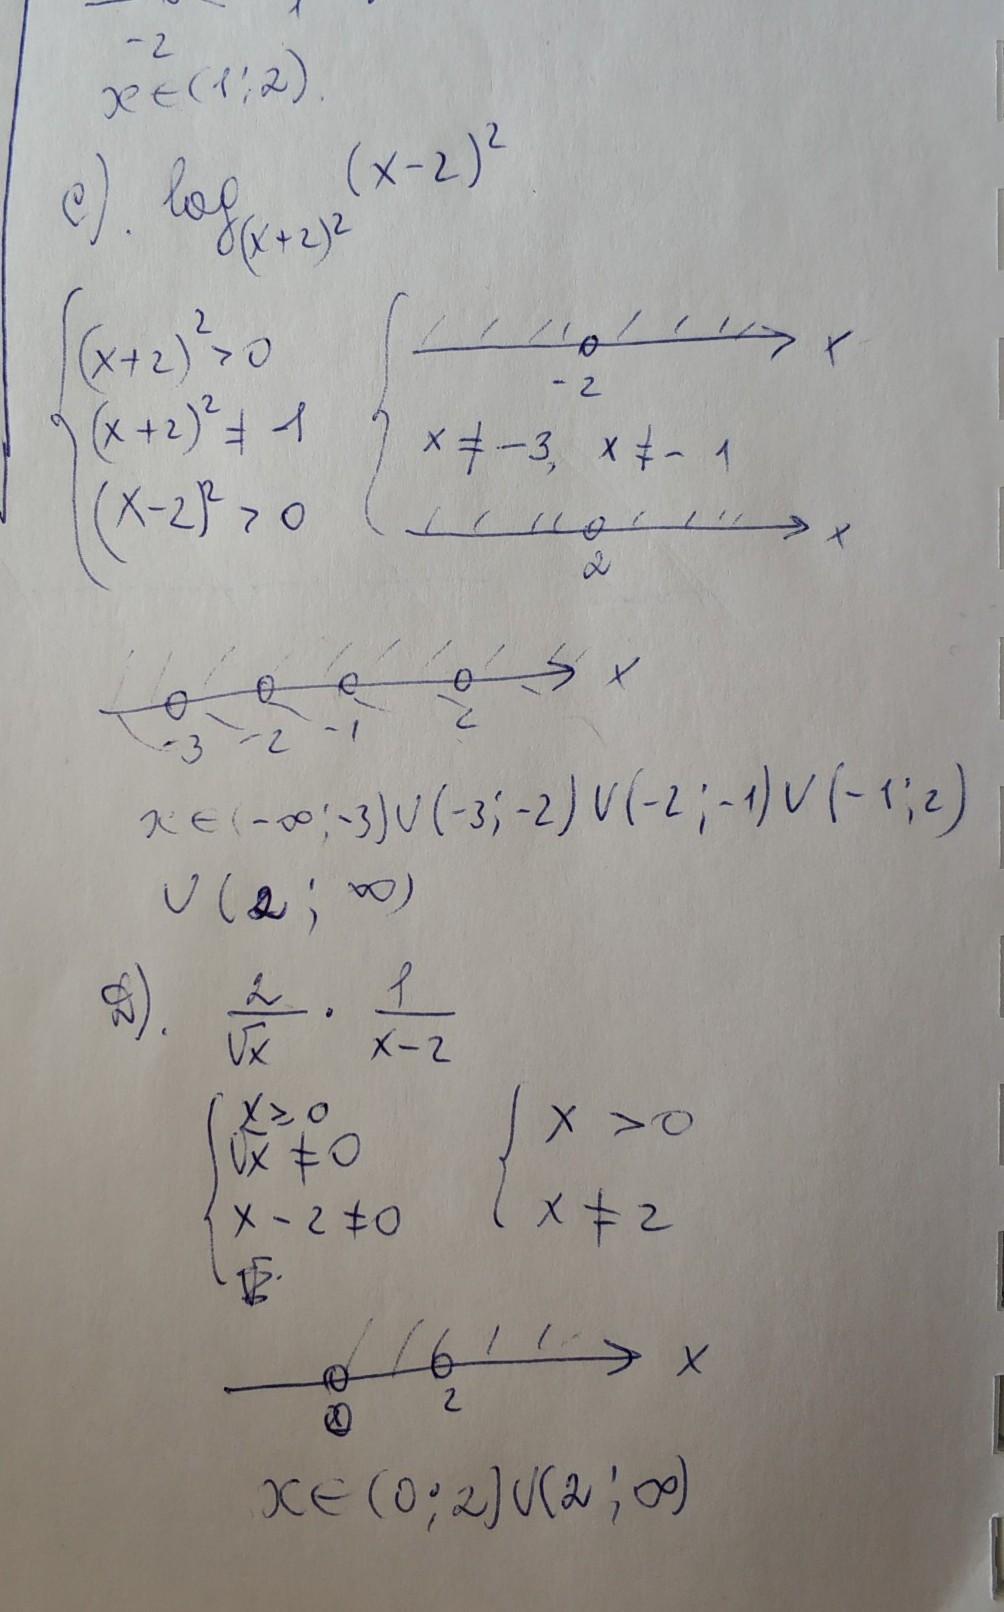 -2
x∈(1;2).
c). log_{(x+2)^2} (x-2)^2
(x+2)^2 > 0
(x+2)^2 ≠ 1
(x-2)^2 > 0
x
-2
x ≠ -3, x ≠ -1
x
2
x
-3 -2 -1 2
x∈(-∞;-3)∪(-3;-2)∪(-2;-1)∪(-1;2)
∪(2;∞)
D). 2/√x · 1/(x-2)
x ≥ 0
√x ≠ 0
x - 2 ≠ 0
x > 0
x ≠ 2
x
0 2
x∈(0;2)∪(2;∞)